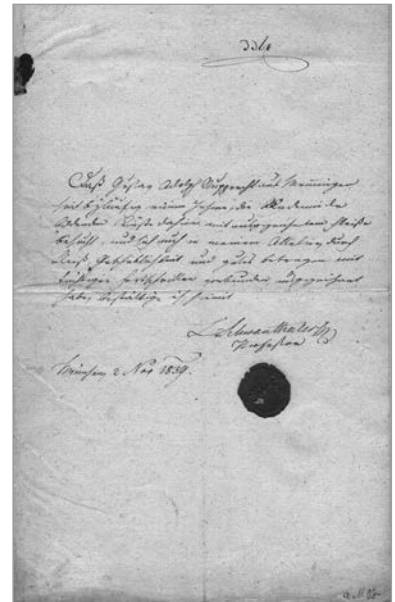 Daß Gustav Adolph Rupprecht aus Memmingen
seit beyläufig einem Jahre die Akademie der
bildenden Künste dahier mit ausgezeichnetem Fleiße
besucht, und sich auch in meinem Atelier durch
Fleiß, Gesittetheit und gutes Betragen mit
tüchtigen Fortschritten verbunden ausgezeichnet
habe, bestättige ich hiemit
L. Schwanthaler
Professor
München 2 Nov 1839.